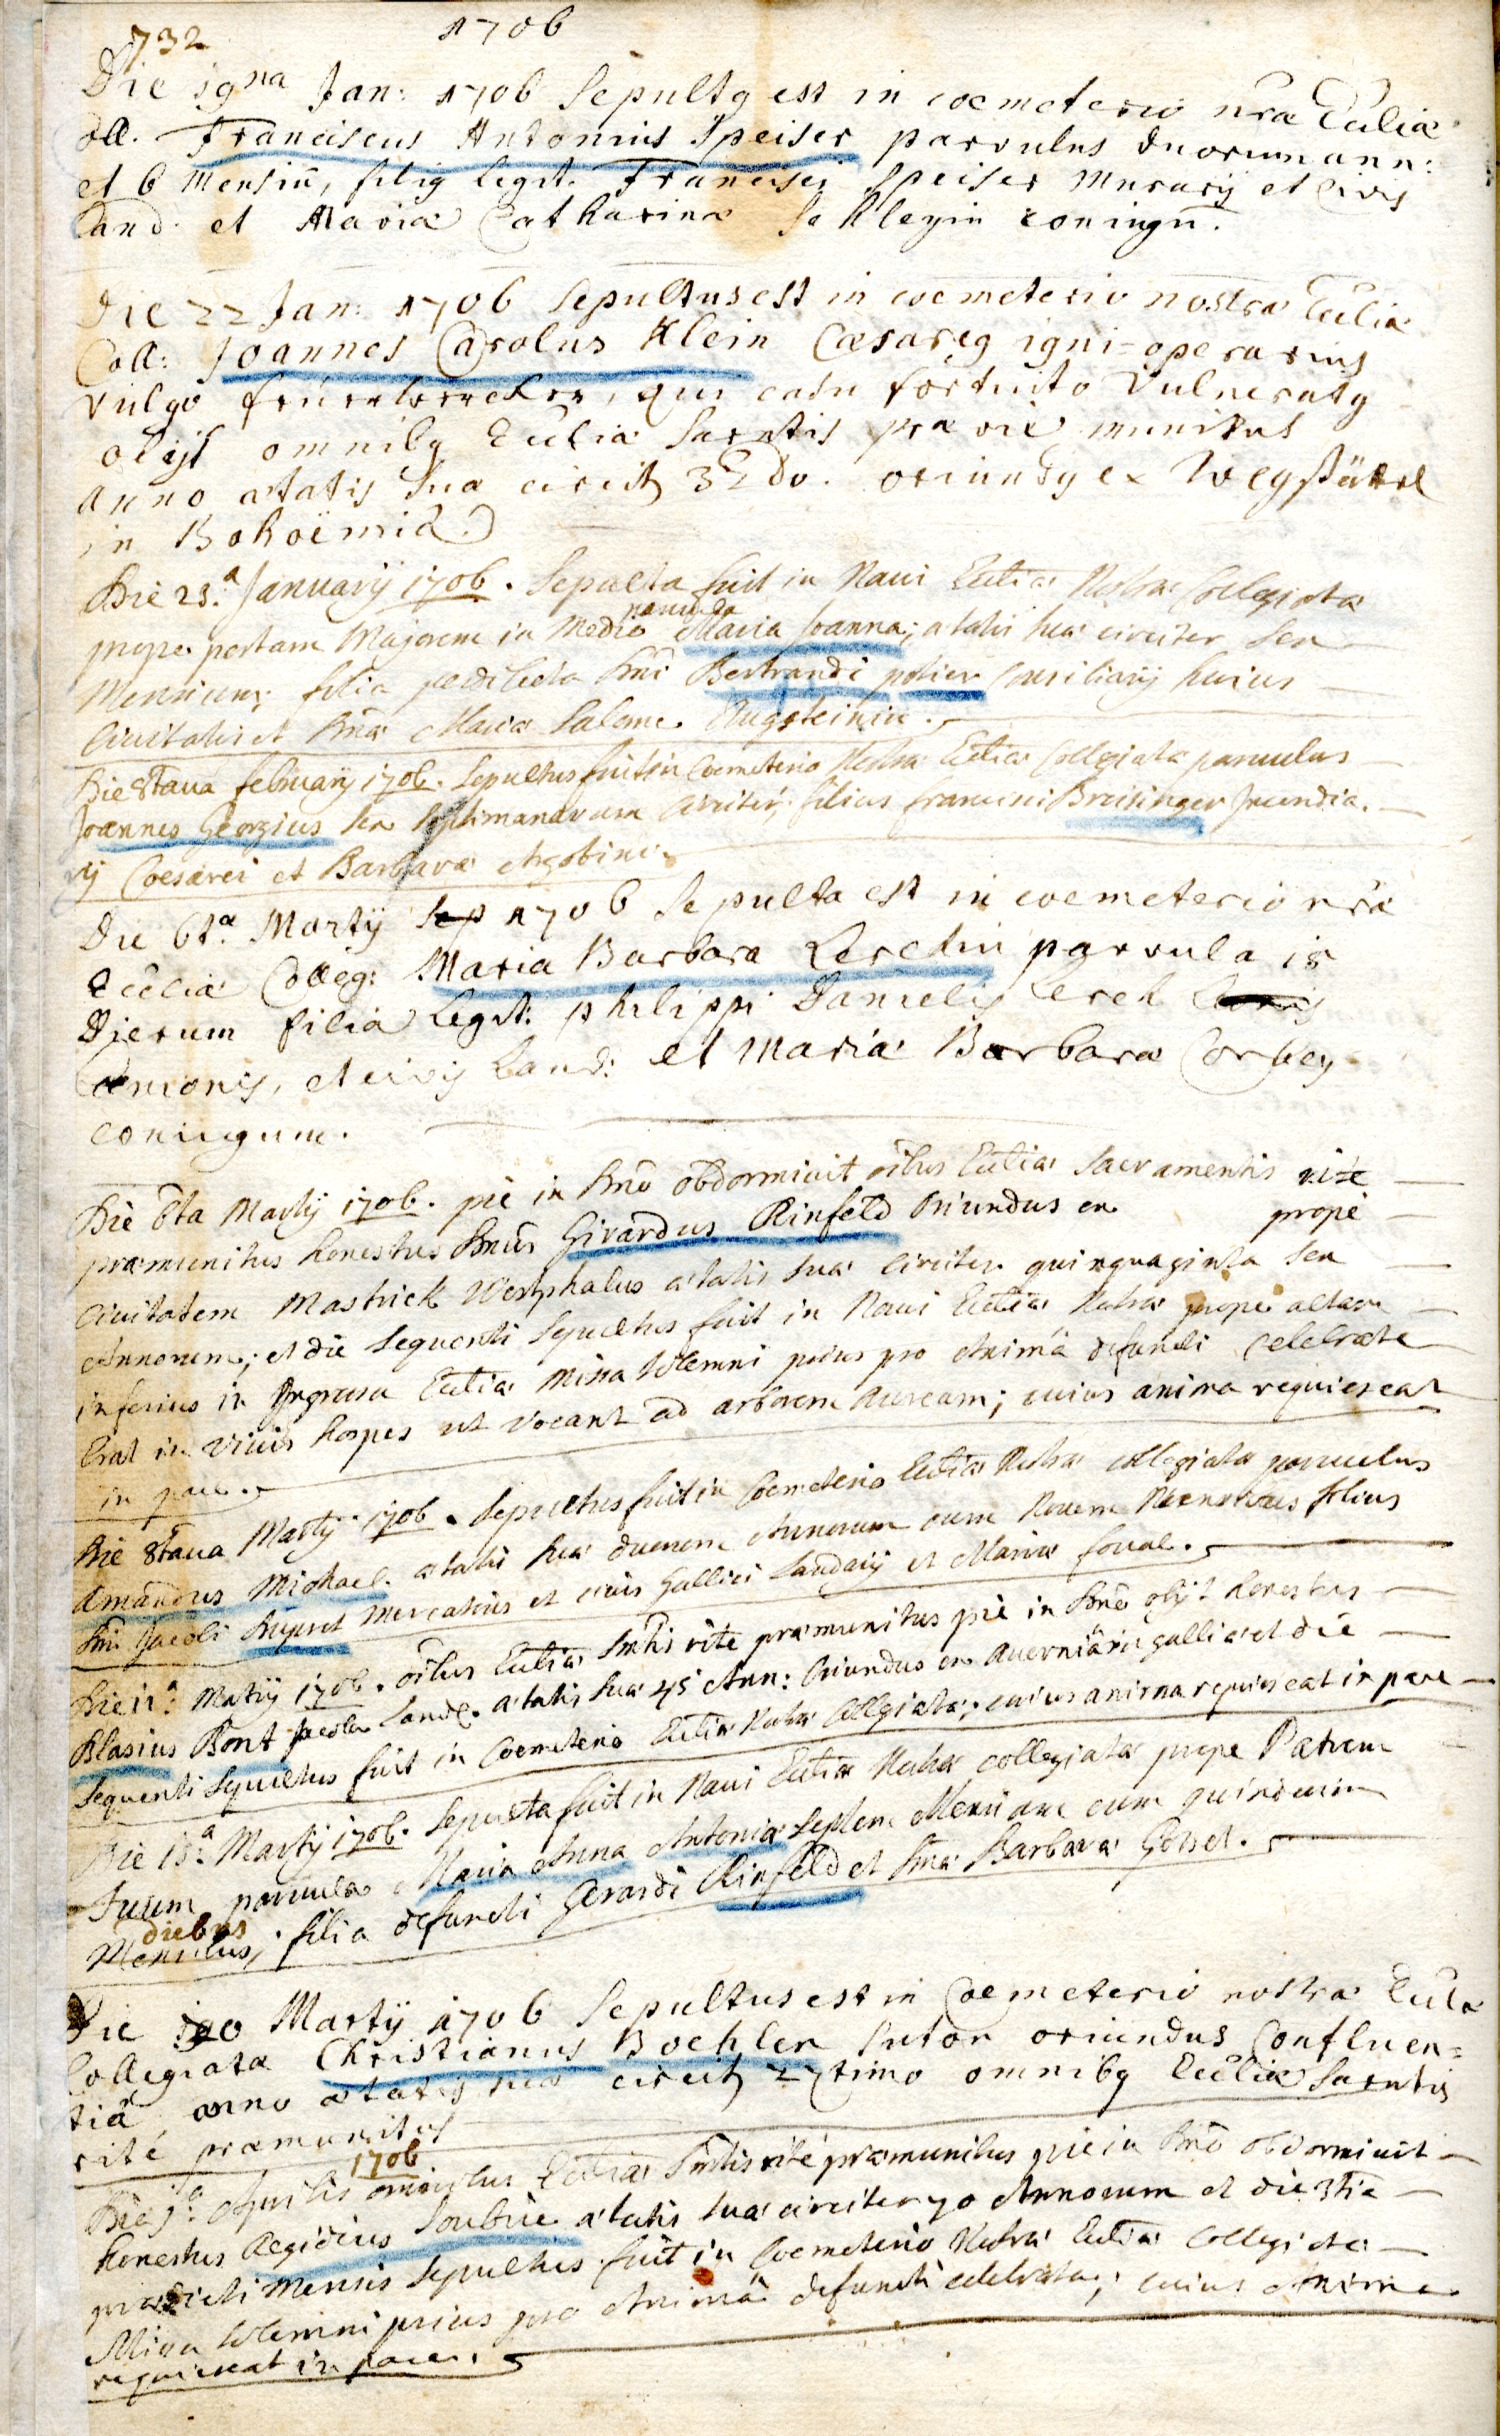 732
1706
Die 19na Jan: 1706 Sepultq est in coemeterio nrae Eccliae
Coll. Franciscus Antonius Speiser parvulus duorum ann:
et 6 Mensiu, filiq legit. Francisci Speiser Murarij et Civis
Land. et Mariae Catharinae Schleyin coniugu.
Die 22 Jan: 1706 Sepultus est in coemeterio nostrae Eccliae
Coll: Joannes Carolus Klein Caesareq igni=operarius
vulgo , qui casu fortuito vulneratq
obijt omnibq Eccliae Sacrtis pravie munitus
anno aetatis suae circit 32do. oriundq ex Wegstättl
in Bohoëmia.
Die 23.a Januarij 1706. Sepulta fuit in Navi Ecclia Nostra Collegiata
parvula
prope portam Majorem in Medio Maria Joanna; aetatis suae circiter sex
Mensium; filia Dni Bertrandi potier Consiliarij huius
Civitatis et Dnae Maria Salome Augsteinin.
Die 8tava februarij 1706. Sepultus fuit in Coemeterio Nostrae Eccliae Collegiatae parvulus
Joannes Georgius sex septimanarum circiter, filius Francisci Breisinger Incendia.
rij Coesarei et Barbarae
Die 6ta. Martij Sep 1706 Sepulta est in coemeterio nrae
Eccliae Colleg: Maria Barbara Lerchin parvula 18
Dierum filia Legit: philippi Danielis Lerch
et civis Land: et Mariae Barbarae Corbey
coniugum.
Die 6ta Martij 1706. pie in Dno obdormivit oibus Eccliae Sacramentis rite
praemunitus honestus Dnus Girardus Rinfeld Oriundus ex prope
Civitatem Mastrick Westphalus aetatis suae circiter quinquaginta sex
Annorum; et die sequenti Sepultus fuit in Navi Eccliae Nostrae prope altare
inferius in Ingressu Eccliae Missa solemni prius pro Anima defuncti celebrata
Erat in vivis hospes ut vocant ad arborem auream; cuius anima requiescat
in pace.
Die 8tava Martij 1706. Sepultus fuit in Coemeterio Eccliae Nostrae Collegiatae parvulus
Amandus Michael aetatis suae duorum Annorum cum Novem Mensibus filius
Dni Jacobi Mercatoris et civis Gallici Landavij et Maria
Die 11.a Martij 1706. oibus Eccliae Smtis rite praemunitus pie in Dno obijt honestus
Blasius Bont Land. aetatis suae 45 Ann: Oriundus ex Avernia in gallia et die
sequenti Sepultus fuit in Coemeterio Eccliae Nostrae Collegiatae; cuius anima requiescat in pace
Die 13.a Martij 1706. Sepulta fuit in Navi Eccliae Nostrae collegiatae prope Patrem
suum parvula Maria Anna Antonia Septem Mensium cum quindecim
diebus
Mensibus, filia defuncti Gerardi Rinfeld et Dnae Barbara Gossel.
Die 30 Martij 1706 Sepultus est in Coemeterio nostrae Eccla
Collegiatae Christianus Boehler Sutor oriundus Confluen=
tia anno aetatis suae circit 27timo omnibq Eccliae Sacrtis
rite praemunitus
1706
Die 1.a Aprilis omnibus Eccliae Smtis rite praemunitus pie in Dno obdormivit
honestus Aegidius Soubrie aetatis suae circiter 70 Annorum et die 3tia
praedicti Mensis Sepultus fuit in Coemeterio Nostrae Eccliae Collegiatae
Missa solemni prius pro Anima defuncti celebrata; cuius Anima
requiescat in pace.